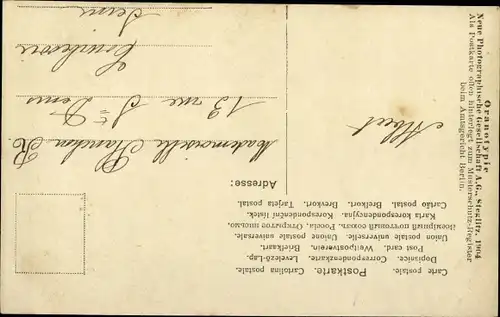 Oranotypie
Neue Photographische Gesellschaft A.G., Steglitz. 1904
Als Postkarte offen hinterlegt zum Musterschutz-Register
beim Amtsgericht Berlin.
Carte postale. Postkarte. Cartolina postale.
Dopisnice. Correspondenzkarte. Levelező-Lap.
Post card. Weltpostverein. Briefkaart.
Union postale universelle. Unione postale universale.
Всемірный почтовый союзъ. Россія. Открытое письмо.
Karta korespondencyjna. Korespondenční lístek.
Cartão postal. Brefkort. Brevkort. Tarjeta postal.
Adresse:
Albert
Mademoiselle
Blanche R.
13 rue St Denis
Seine